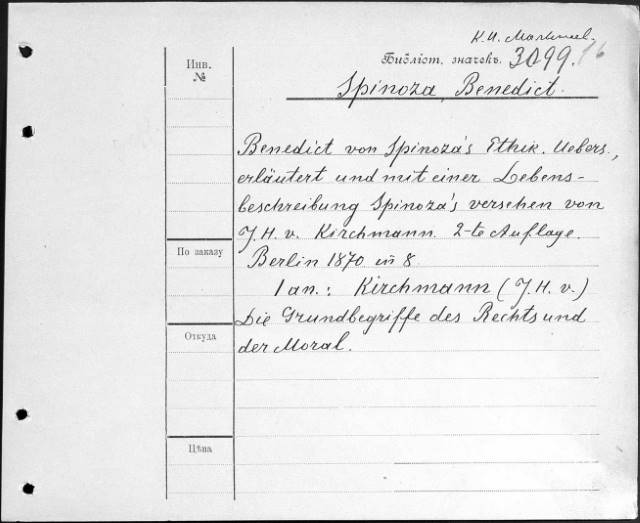 К. И.
Инв.
№
Библіот. значекъ. 3099.
Spinoza, Benedict.
Benedict von Spinoza's Ethik. Uebers.,
erläutert und mit einer Lebens-
beschreibung Spinoza's versehen von
J. H. v. Kirchmann. 2-te Auflage.
По заказу
Berlin 1870 in 8
1 an.: Kirchmann (J. H. v.)
Die Grundbegriffe des Rechts und
Откуда
der Moral.
Цѣна